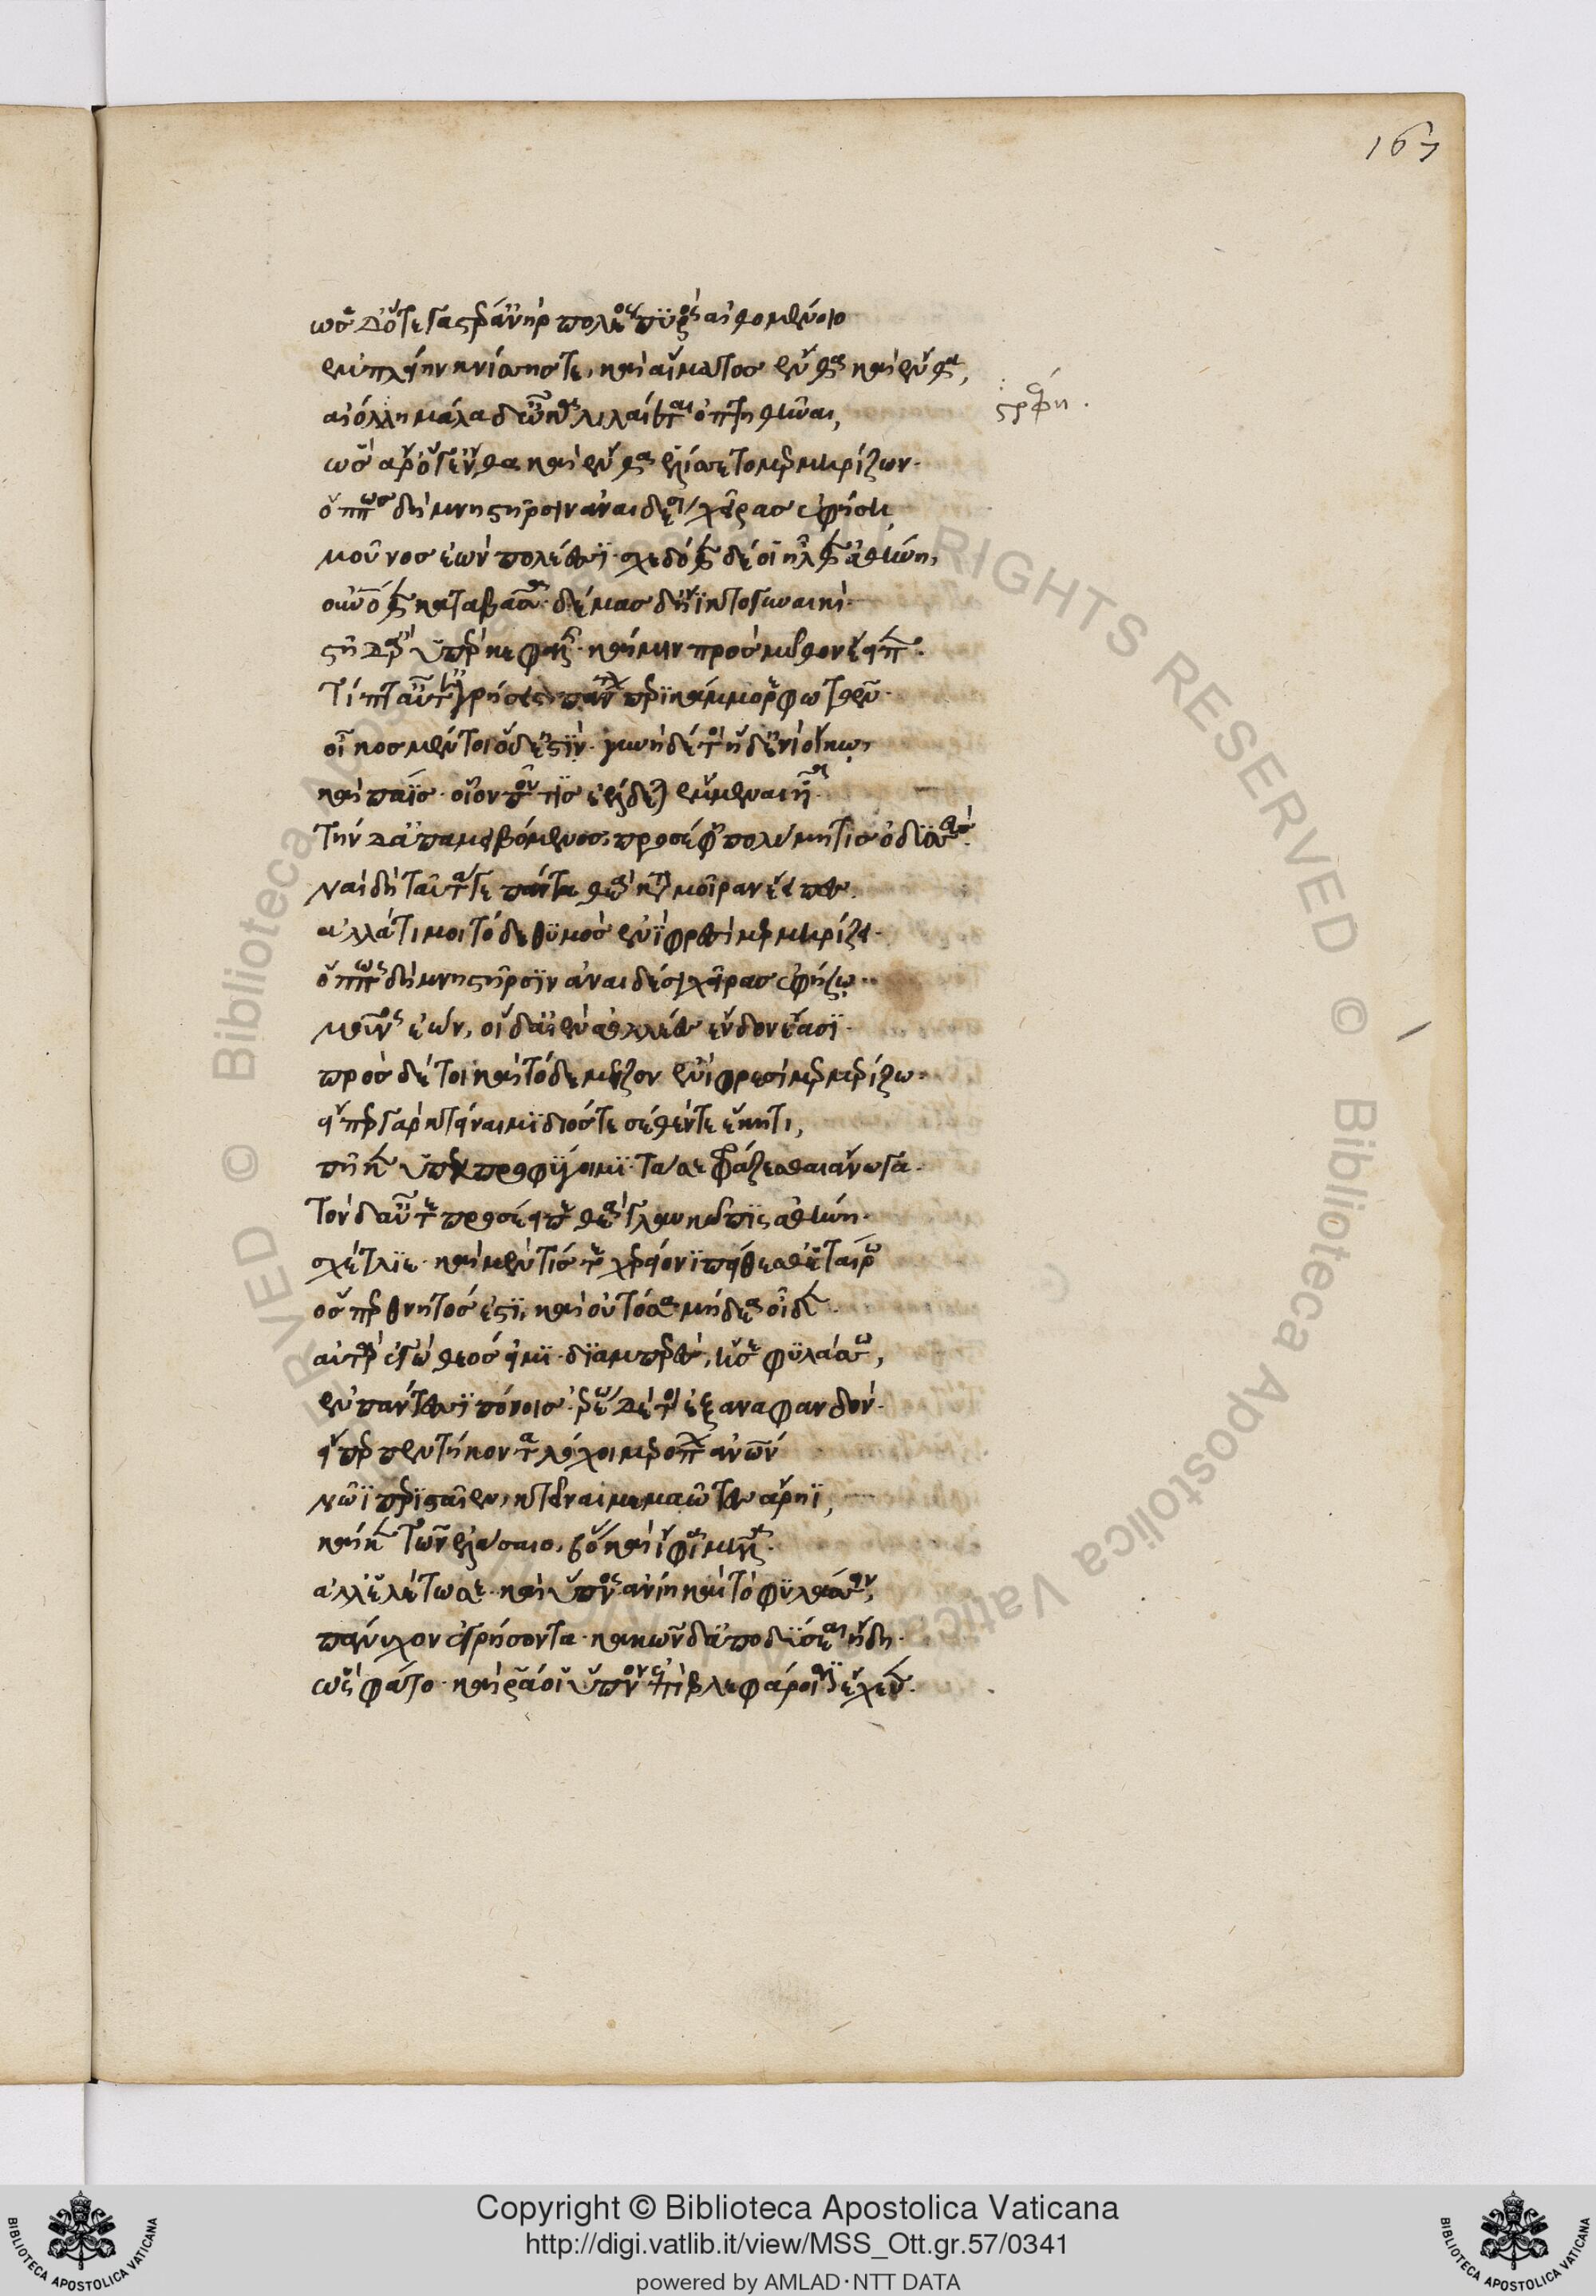 ὡς δ' ὅτε γαστέρ' ἀνὴρ πολέος πυρὸς αἰθομένοιο
ἐμπλείην κνίσης τε, καὶ αἵματος ἔνθα καὶ ἔνθα,
αἰόλλη μάλα δ' ὦκα λιλαίεται ὀπτηθῆναι,
ὣς ἄρ' ὅγ' ἔνθα καὶ ἔνθα ἑλίσσετο μερμηρίζων·
ὅππως δὴ μνηστῆρσιν ἀναιδέσι χεῖρας ἐφήσει
μοῦνος ἐὼν πολέσϊ· σχεδόθεν δέ οἱ ἦλθεν ἀθήνη,
οὐνόθεν καταβᾶσα· δέμας δ' ἤϊκτο γυναικί·
στῆ δ' ἄρ' ὑπὲρ κεφαλῆς· καί μιν πρὸς μῦθον ἔειπε·
τίπτ' αὖτ' ἐγρήσσεις πάντων περὶ κάμμορε φωτῶν·
οἶκος μέν τοι ὅδ' ἐστὶν· γυνὴ δέ τοι ἥδ' ἐνὶ οἴκω,
καὶ παῖς· οἷόν πού τις ἐέλδεται ἔμμεναι υἷα·
τὴν δ' ἀπαμειβόμενος, προσέφη πολύμητις ὀδυσσεύς·
ναὶ δὴ ταῦτά γε πάντα θεὰ κατὰ μοῖραν ἔειπες·
ἀλλά τι μοι τόδε θυμὸς ἐνὶ φρεσὶ μερμηρίζει·
ὅππως δὴ μνηστῆρσϊν ἀναιδέσι χεῖρας ἐφήσω··
μοῦνος ἐών, οἱ δ' αἰὲν ἀολλέες ἔνδον ἔασϊ·
πρὸς δέ τοι καὶ τόδε μεῖζον ἐνὶ φρεσὶ μερμηρίζω·
εἴπερ γὰρ κτείναιμϊ διός τε σέθέν τε ἕκητι,
πῆ κεν ὑπεκπροφύγοιμϊ· τά σε φράζεσθαι ἄνωγα·
τὸν δ' αὖτε προσέειπε θεὰ γλαυκῶπις ἀθήνη·
σχέτλϊε· καὶ μέν τίς τε χερείονϊ πείθεσθ' ἑταίρω
ὅσπερ θνητός ἐστϊ, καὶ οὐ τόσα μήδεα οἶδεν·
αὐτὰρ ἐγὼ θεός εἰμϊ· διαμπερὲς, ἥ σε φυλάσσω,
ἐν πάντεσϊ πόνοις· ἐρέω δέ τοι ἐξαναφανδόν·
εἴπερ πεντήκοντα λόχοι μερόπων ἀνῶν
νῶϊ περισταῖεν, κτεῖναι μεμαῶτες ἄρηϊ,
καί κεν τῶν ἐλάσαιο, βόας καὶ ἴφια μῆλα·
ἀλλ' ἑλέτω σε· καὶ ὕπνος ἀνίη καὶ τὸ φυλάσσειν,
πάννυχον ἐγρήσσοντα· κακῶν δ' ὑποδύσεαι ἤδη·
ὣς φάτο· καὶ ῥά οἱ ὕπνον ἐπὶ βλεφάροισϊν ἔχευεν·
στρέφη·
167
Copyright © Biblioteca Apostolica Vaticana
http://digi.vatlib.it/view/MSS_Ott.gr.57/0341
powered by AMLAD·NTT DATA
BIBLIOTECA APOSTOLICA VATICANA
BIBLIOTECA APOSTOLICA VATICANA